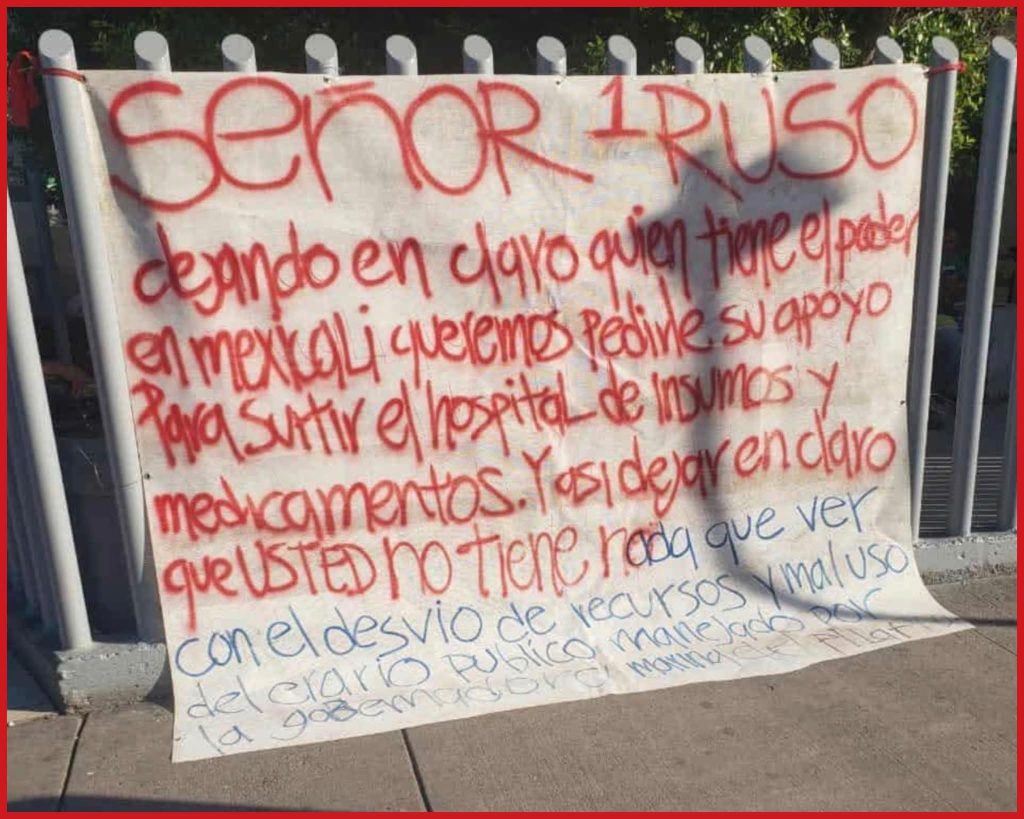 SEÑOR 1 RUSO
dejando en claro quien tiene el poder
en mexicali queremos Pedirle su apoyo
Para surtir el hospital de Insumos y
medicamentos. Y asi dejar en claro
que USTED no Tiene nada que ver
con el desvio de recursos y mal uso
del erario publico manejado por
la gobernadora marina del Pilar